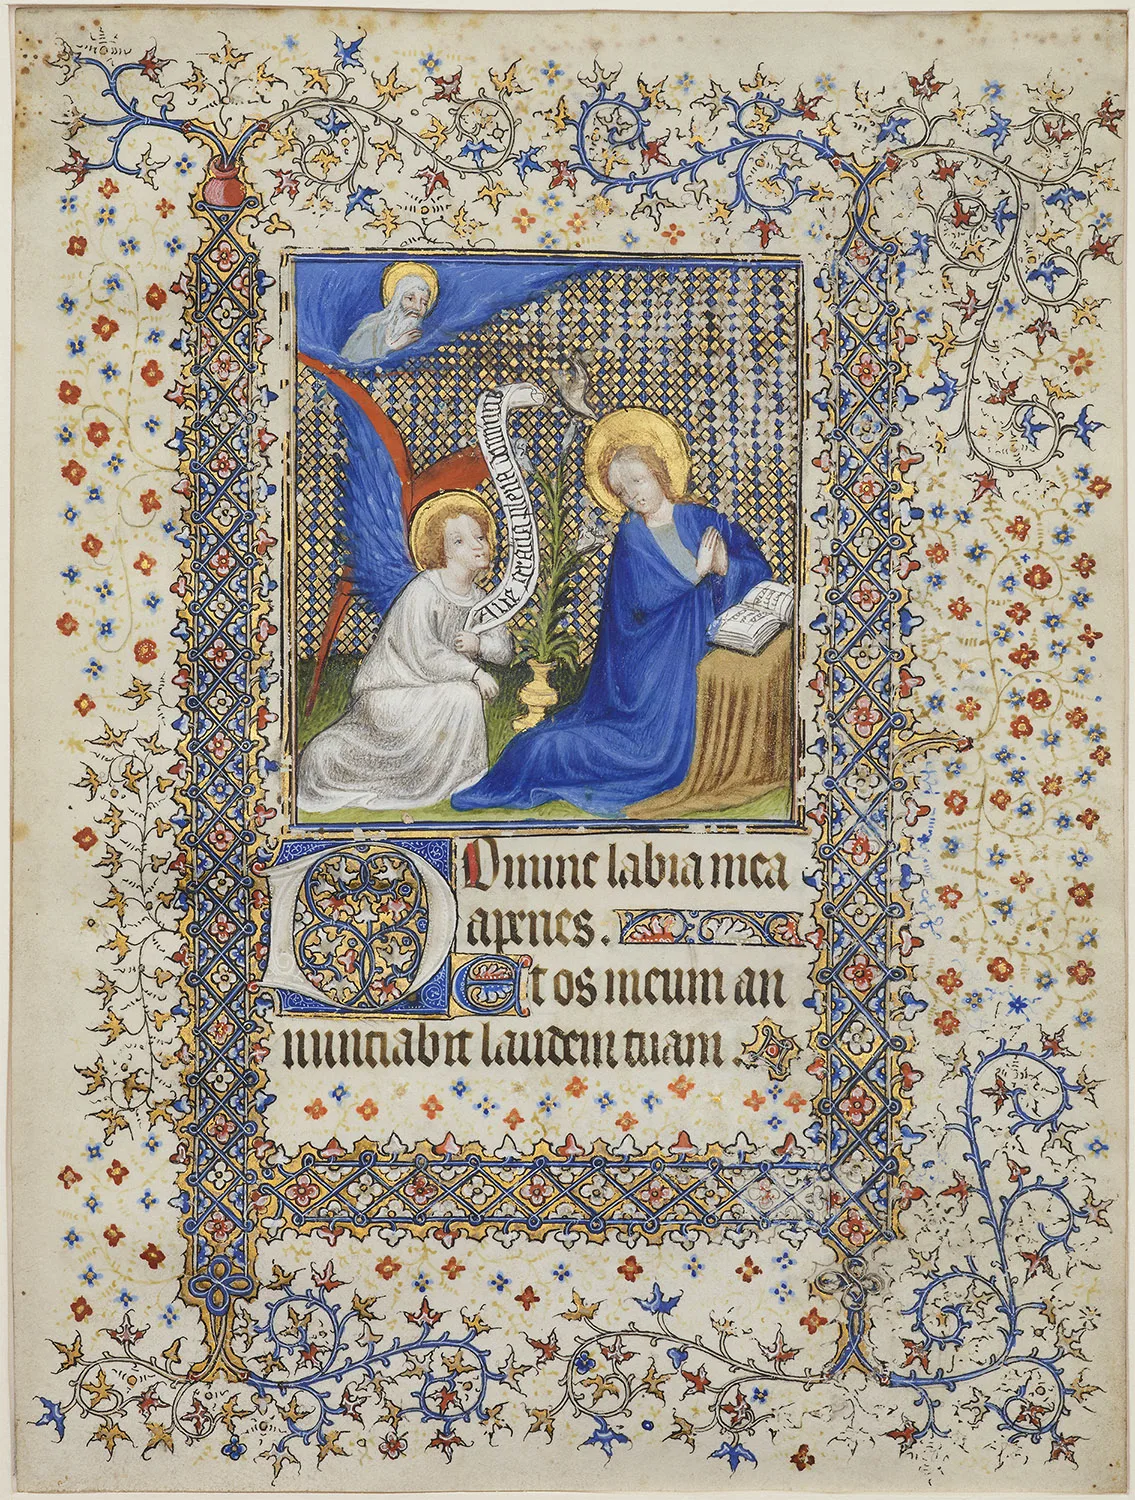 Ave gracia plena dominus
Domine labia mea
aperies.
Et os meum an
nunciabit laudem tuam.